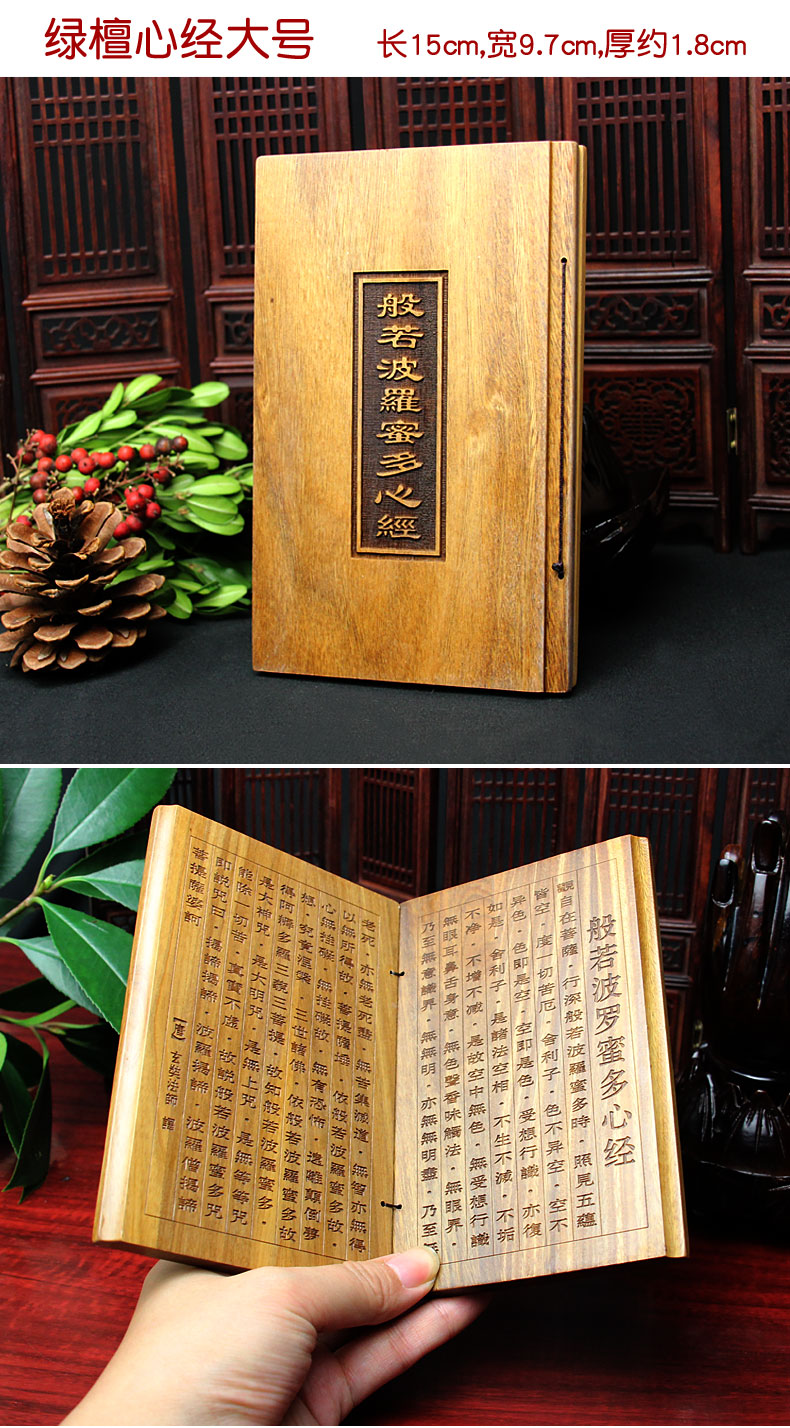 绿檀心经大号 长15cm,宽9.7cm,厚约1.8cm
般若波羅蜜多心經
般若波罗蜜多心经
觀自在菩薩·行深般若波羅蜜多時·照見五蘊
皆空·度一切苦厄·舍利子·色不异空·空不
异色·色即是空·空即是色·受想行識·亦復
如是·舍利子·是諸法空相·不生不滅·不垢
不净·不增不減·是故空中無色·無受想行識
無眼耳鼻舌身意·無色聲香味觸法·無眼界·
乃至無意識界·無無明·亦無無明盡·乃至
老死·亦無老死盡·無苦集滅道·無智亦無得
以無所得故·菩提薩埵·依般若波羅蜜多故·
心無挂礙·無挂礙故·無有恐怖·遠離顛倒夢
想·究竟涅槃·三世諸佛·依般若波羅蜜多故
得阿耨多羅三藐三菩提·故知般若波羅蜜多·
是大神咒·是大明咒·是無上咒·是無等等咒
能除一切苦·真實不虛·故説般若波羅蜜多咒
即説咒曰·揭諦揭諦·波羅揭諦·波羅僧揭諦
菩提薩婆訶
【唐】玄奘法師 譯